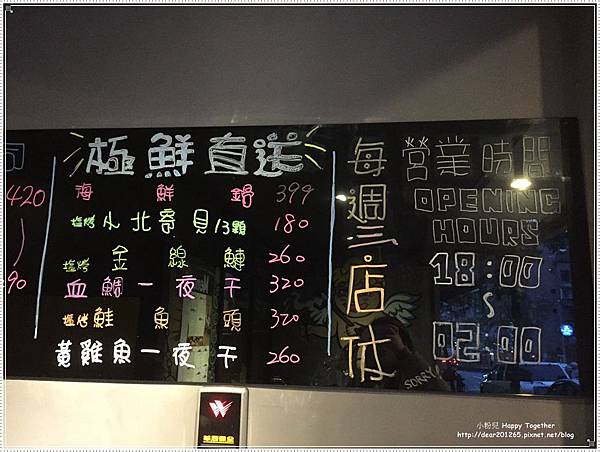 司
420
90
極鮮直送
海鮮鍋 399
塩烤小北寄貝13顆 180
塩烤金線鰱 260
血鯛一夜干 320
塩烤鮭魚頭 320
黃雞魚一夜干 260
每週三店休
SORRY!
營業時間
OPENING
HOURS
18:00
S
02:00
小粉兒 Happy Together
http://dear201265.pixnet.net/blog